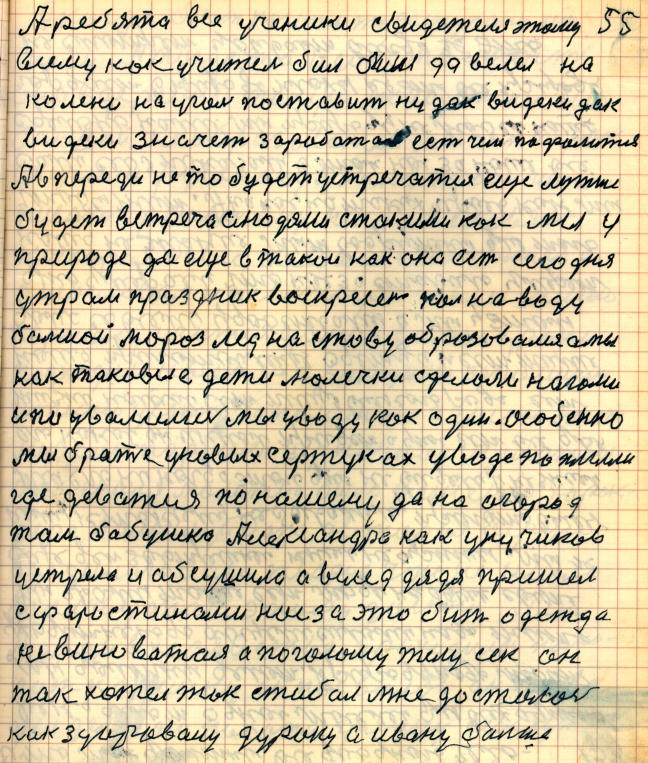 А ребята все ученики свидетеля этому 55
всему кок учител бил был да велел на
колени на угол поставит ну дак видеки дак
видеки значет заработал ест чем пофалится
Ав переди не то будет устречатия еще лутше
будет встреча слюдями стакими кок мы у
природе да еще втакой как она ест сегодня
утрам праздник воскресен пол на воду
бамной мороз лед на ставу образовался а мы
как таковые дети молечки сделоли ногоми
и по увалилис мы уводу кок один. особенно
мы брате уновых сертуках уводе по
где деватия по нашему да на огород
там бабушка Александра как унучиков
устрела и обсушила а вслед дядя пришел
схраростинами нос за это бит одежда
невиноватоя а поголому телу сек он
так хотел так стибал мне досталос
как здоровому дураку а ивану болше